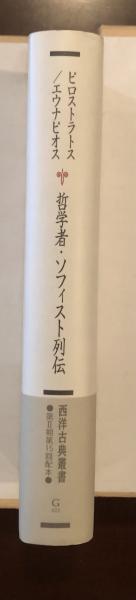 ピロストラトス
/エウナピオス
哲学者・ソフィスト列伝
西洋古典叢書
●第Ⅱ期第15回配本●
G
022